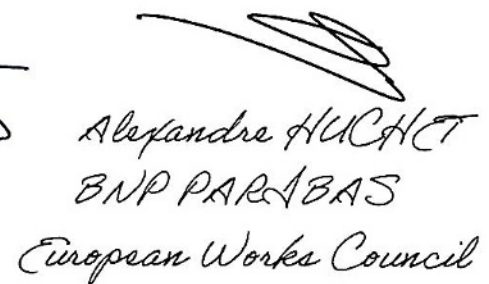 Alexandre HUCHET
BNP PARIBAS
European Works Council